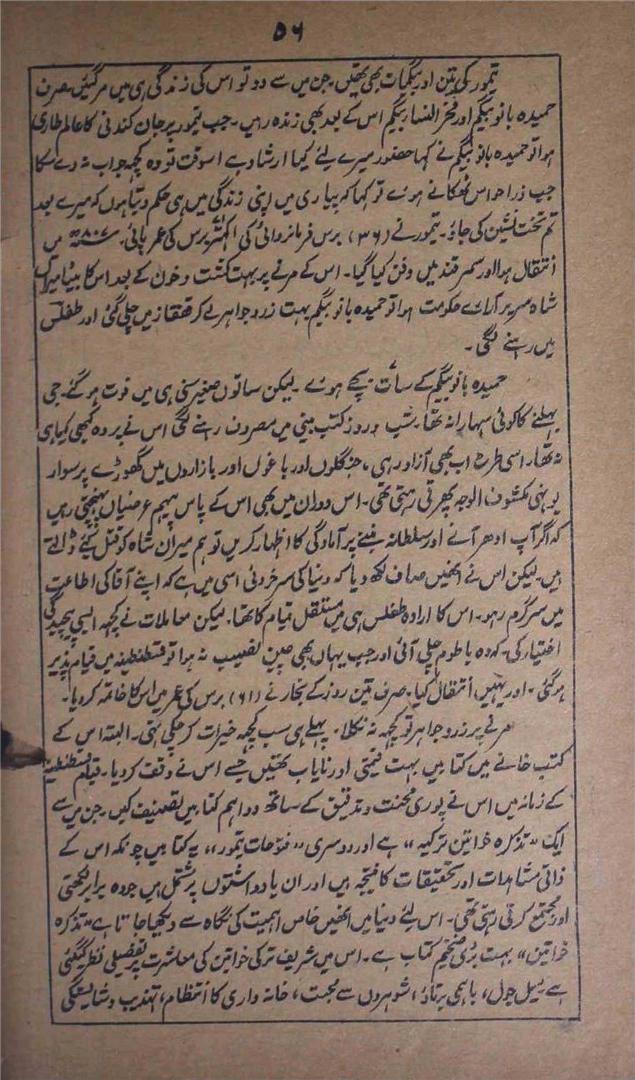 ۵۶
تیمور کی تین اور بیگمات بھی تھیں جن میں سے دو تو اس کی زندگی ہی میں مرگئیں صرف
حمیدہ بانو بیگم اور فخر النسا بیگم اس کے بعد بھی زندہ رہیں۔ جب تیمور پر جان کندنی کا عالم طاری
ہوا تو حمیدہ بانو بیگم نے کہا حضور میرے لئے کیا ارشاد ہے اسوقت تو وہ کچھ جواب نہ دے سکا
جب ذرا حواس ٹھکانے ہوئے تو کہا کہ بیماری میں اپنی زندگی میں ہی حکم دیتا ہوں کہ میرے بعد
تم تخت نشین کی جاؤ۔ تیمور نے (۳۶) برس فرمانروائی کی اکہتر برس کی عمر پائی۔ ۸۰۷ھ میں
انتقال ہوا اور سمرقند میں دفن کیا گیا۔ اس کے مرنے پر بہت کشت و خون کے بعد اس کا بیٹا میران
شاہ سریر آرائے حکومت ہوا تو حمیدہ بانو بیگم بہت زر و جواہر لے کر قفقاز میں چلی گئی اور طفلس
میں رہنے لگی۔
حمیدہ بانو بیگم کے سات بچے ہوئے۔ لیکن ساتوں صغیر سنی ہی میں فوت ہو گئے۔ جی
بہلنے کا کوئی سہارا نہ تھا۔ شب و روز کتب بینی میں مصروف رہنے لگی اس نے پردہ کبھی کیا ہی
نہ تھا۔ اسی طرح اب بھی آزاد رہی، جنگلوں اور باغوں اور بازاروں میں گھوڑے پر سوار
یونہی مکشوف الوجہ پھرتی رہتی تھی۔ اس دوران میں بھی اس کے پاس پیہم عرضیاں پہنچتی رہیں
کہ اگر آپ ادھر آنے اور سلطانہ بننے پر آمادگی کا اظہار کریں تو ہم میران شاہ کو قتل کئے ڈالتے
ہیں۔ لیکن اس نے انھیں صاف لکھ دیا کہ دنیا کی سرخروئی اسی میں ہے کہ اپنے آقا کی اطاعت
میں سرگرم رہو۔ اس کا ارادہ طفلس ہی میں مستقل قیام کا تھا۔ لیکن معاملات نے کچھ ایسی پیچیدگی
اختیار کی۔ کہ وہ باطوم چلی آئی اور جب یہاں بھی چین نصیب نہ ہوا تو قسطنطنیہ میں قیام پذیر
ہو گئی۔ اور یہیں انتقال کیا۔ صرف تین روز کے بخار نے (۶۱) برس کی عمر میں اس کا خاتمہ کر دیا۔
مرنے پر زر و جواہر تو کچھ نہ نکلا۔ پہلے ہی سب کچھ خیرات کر چکی تھی۔ البتہ اس کے
کتب خانے میں کتابیں بہت قیمتی اور نایاب تھیں جسے اس نے وقف کر دیا۔ قیام قسطنطنیہ
کے زمانہ میں اس نے پوری محنت و تدقیق کے ساتھ دو اہم کتابیں تصنیف کیں۔ جن میں سے
ایک "تذکرہ خواتین ترکیہ" ہے اور دوسری "فتوحات تیمور" یہ کتابیں چونکہ اس کے
ذاتی مشاہدات اور تحقیقات کا نتیجہ ہیں اور ان یادداشتوں پر مشتمل ہیں جو وہ برابر لکھتی
اور مجتمع کرتی رہتی تھی۔ اس لئے دنیا میں انھیں خاص اہمیت کی نگاہ سے دیکھا جاتا ہے "تذکرہ
خواتین" بہت بڑی ضخیم کتاب ہے۔ اس میں شریف ترکی خواتین کی معاشرت پر تفصیلی نظر کی گئی
ہے میل جول، باہمی برتاؤ، شوہروں سے محبت، خانہ داری کا انتظام، تہذیب و شایستگی